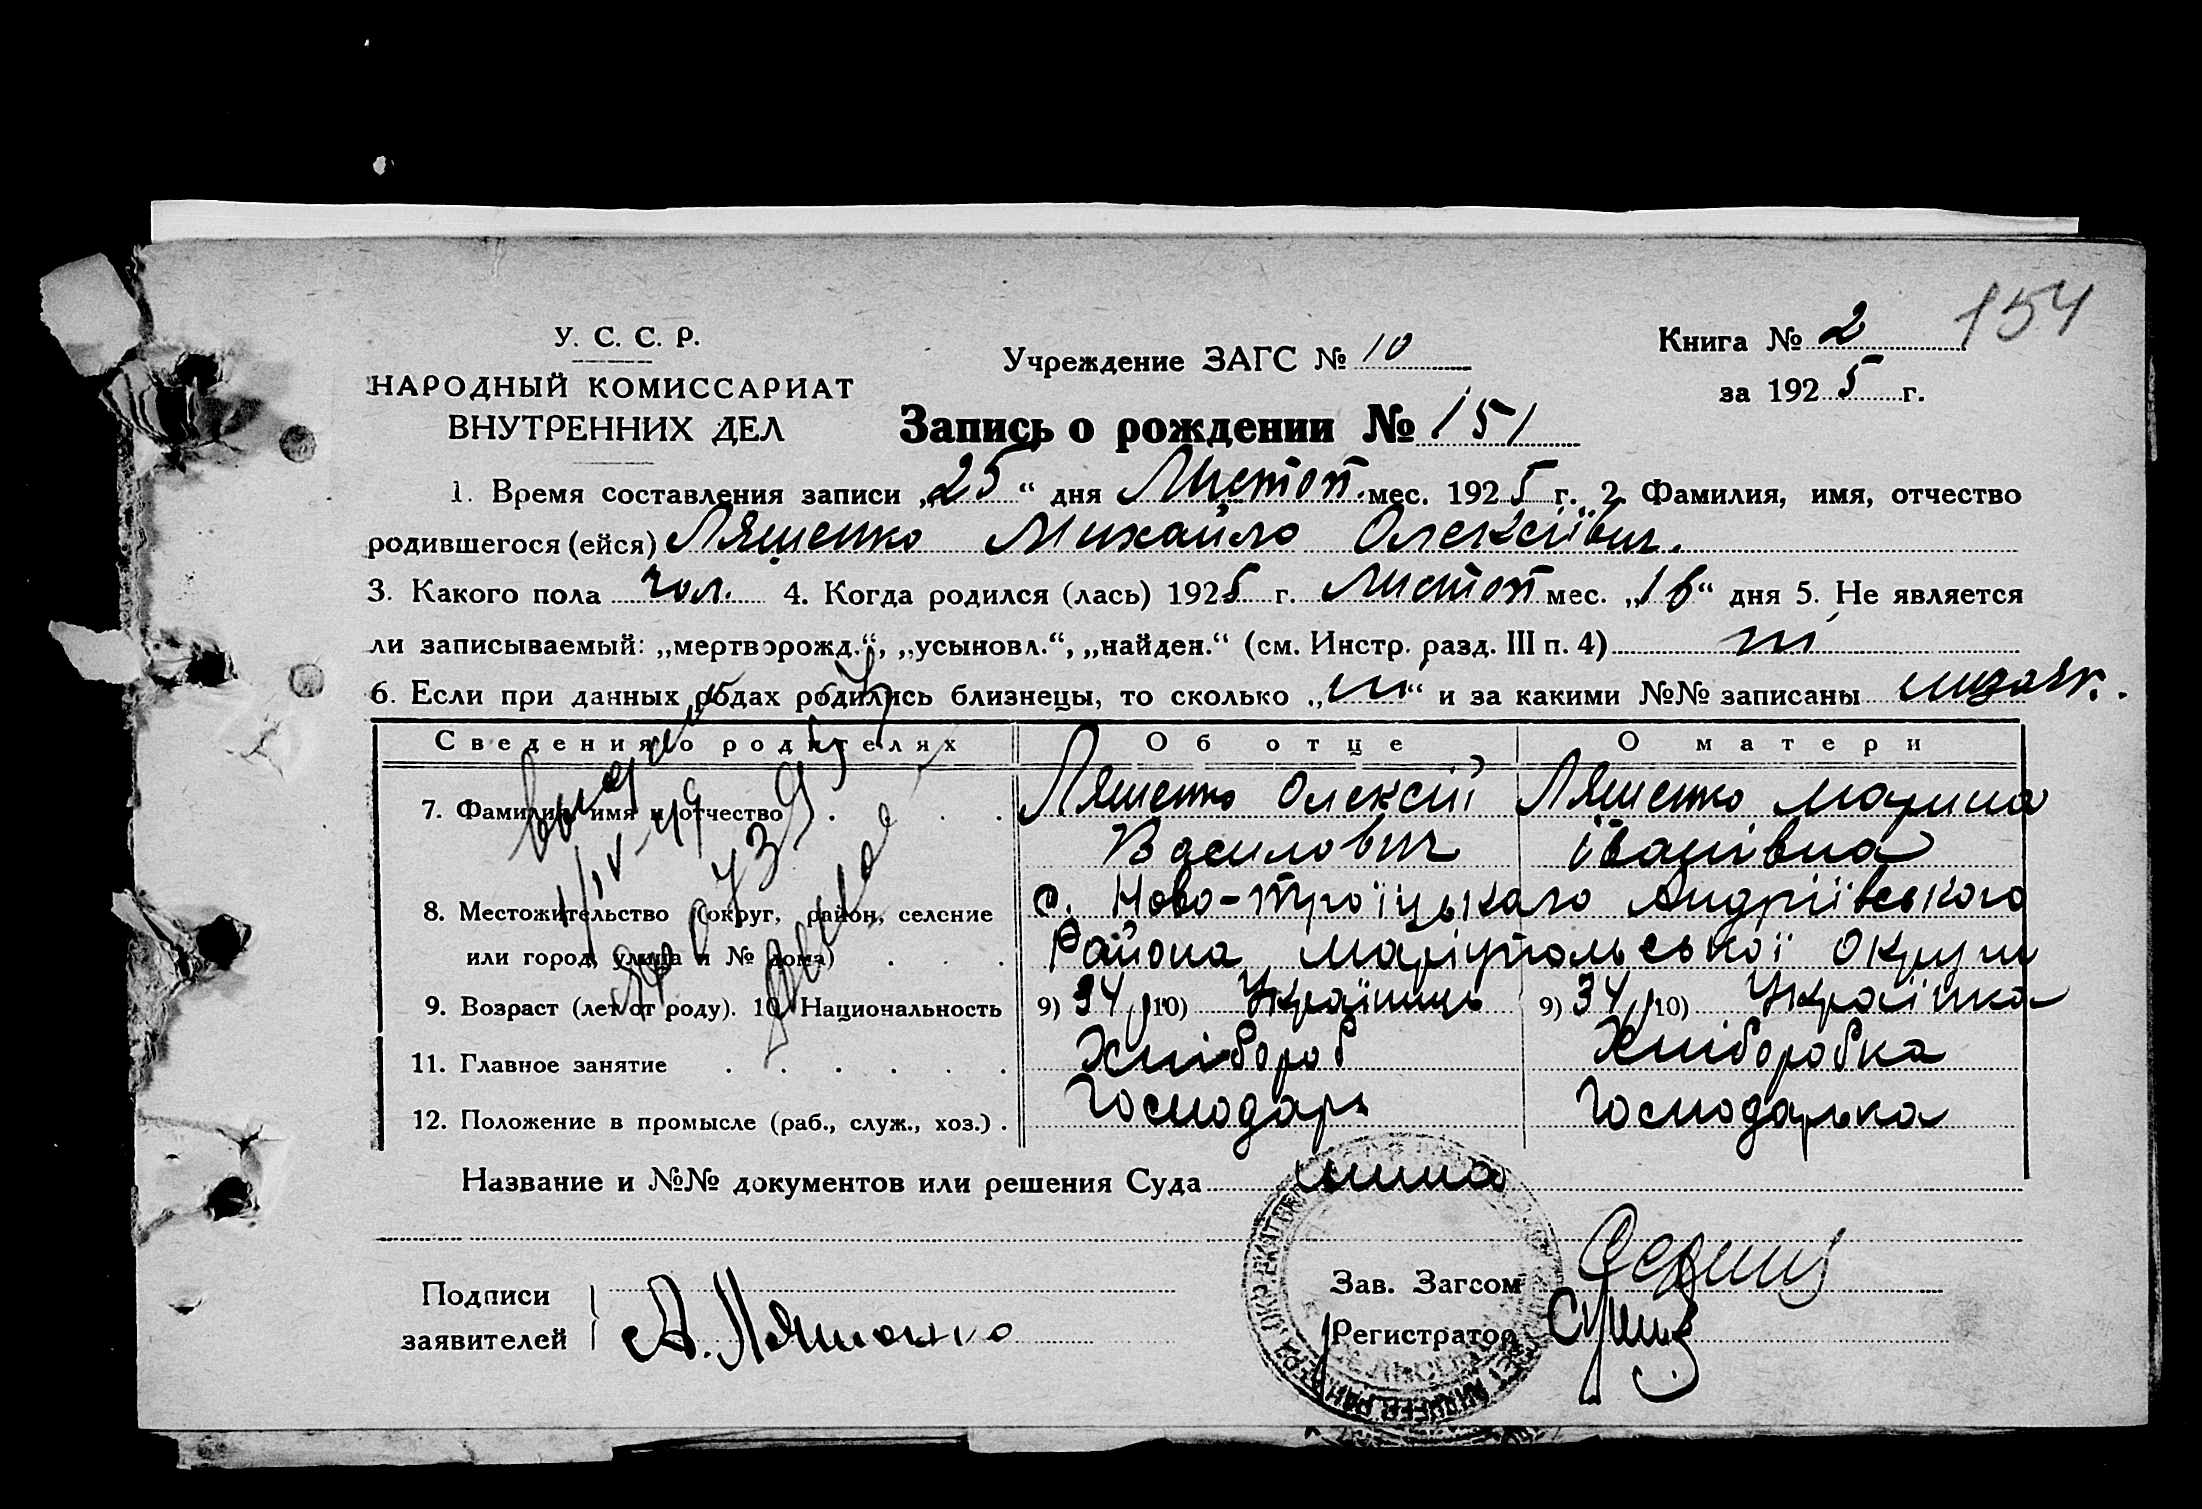 У. С. С. Р.
НАРОДНЫЙ КОМИССАРИАТ
ВНУТРЕННИХ ДЕЛ
Учреждение ЗАГС № 10
Книга № 2
154
за 1925 г.
Запись о рождении № 151
1. Время составления записи „25“ дня Листоп. мес. 1925 г. 2. Фамилия, имя, отчество
родившегося (ейся) Ляшенко Михайло Олексіївич.
3. Какого пола чол. 4. Когда родился (лась) 1925 г. Листоп мес. „16“ дня 5. Не является
ли записываемый: „мертворожд.“, „усыновл.“, „найден.“ (см. Инстр. разд. III п. 4) ні
6. Если при данных родах родились близнецы, то сколько „ні“ и за какими №№ записаны
Сведения о родителях Об отце О матери
7. Фамилия, имя и отчество Ляшенко Олексій Ляшенко Марина
Василович Іванівна
8. Местожительство (округ, район, селение с. Ново-Троїцького Андріївського
или город, улица и № дома) Района Маріупольської Округи
9. Возраст (лет от роду). 10. Национальность 9) 34 10) Українець 9) 34 10) Українка
11. Главное занятие Хлібороб Хліборобка
12. Положение в промысле (раб., служ., хоз.) Господарь Господарька
Название и №№ документов или решения Суда нима
Подписи
заявителей А. Ляшенко
Зав. Загсом
Регистратор